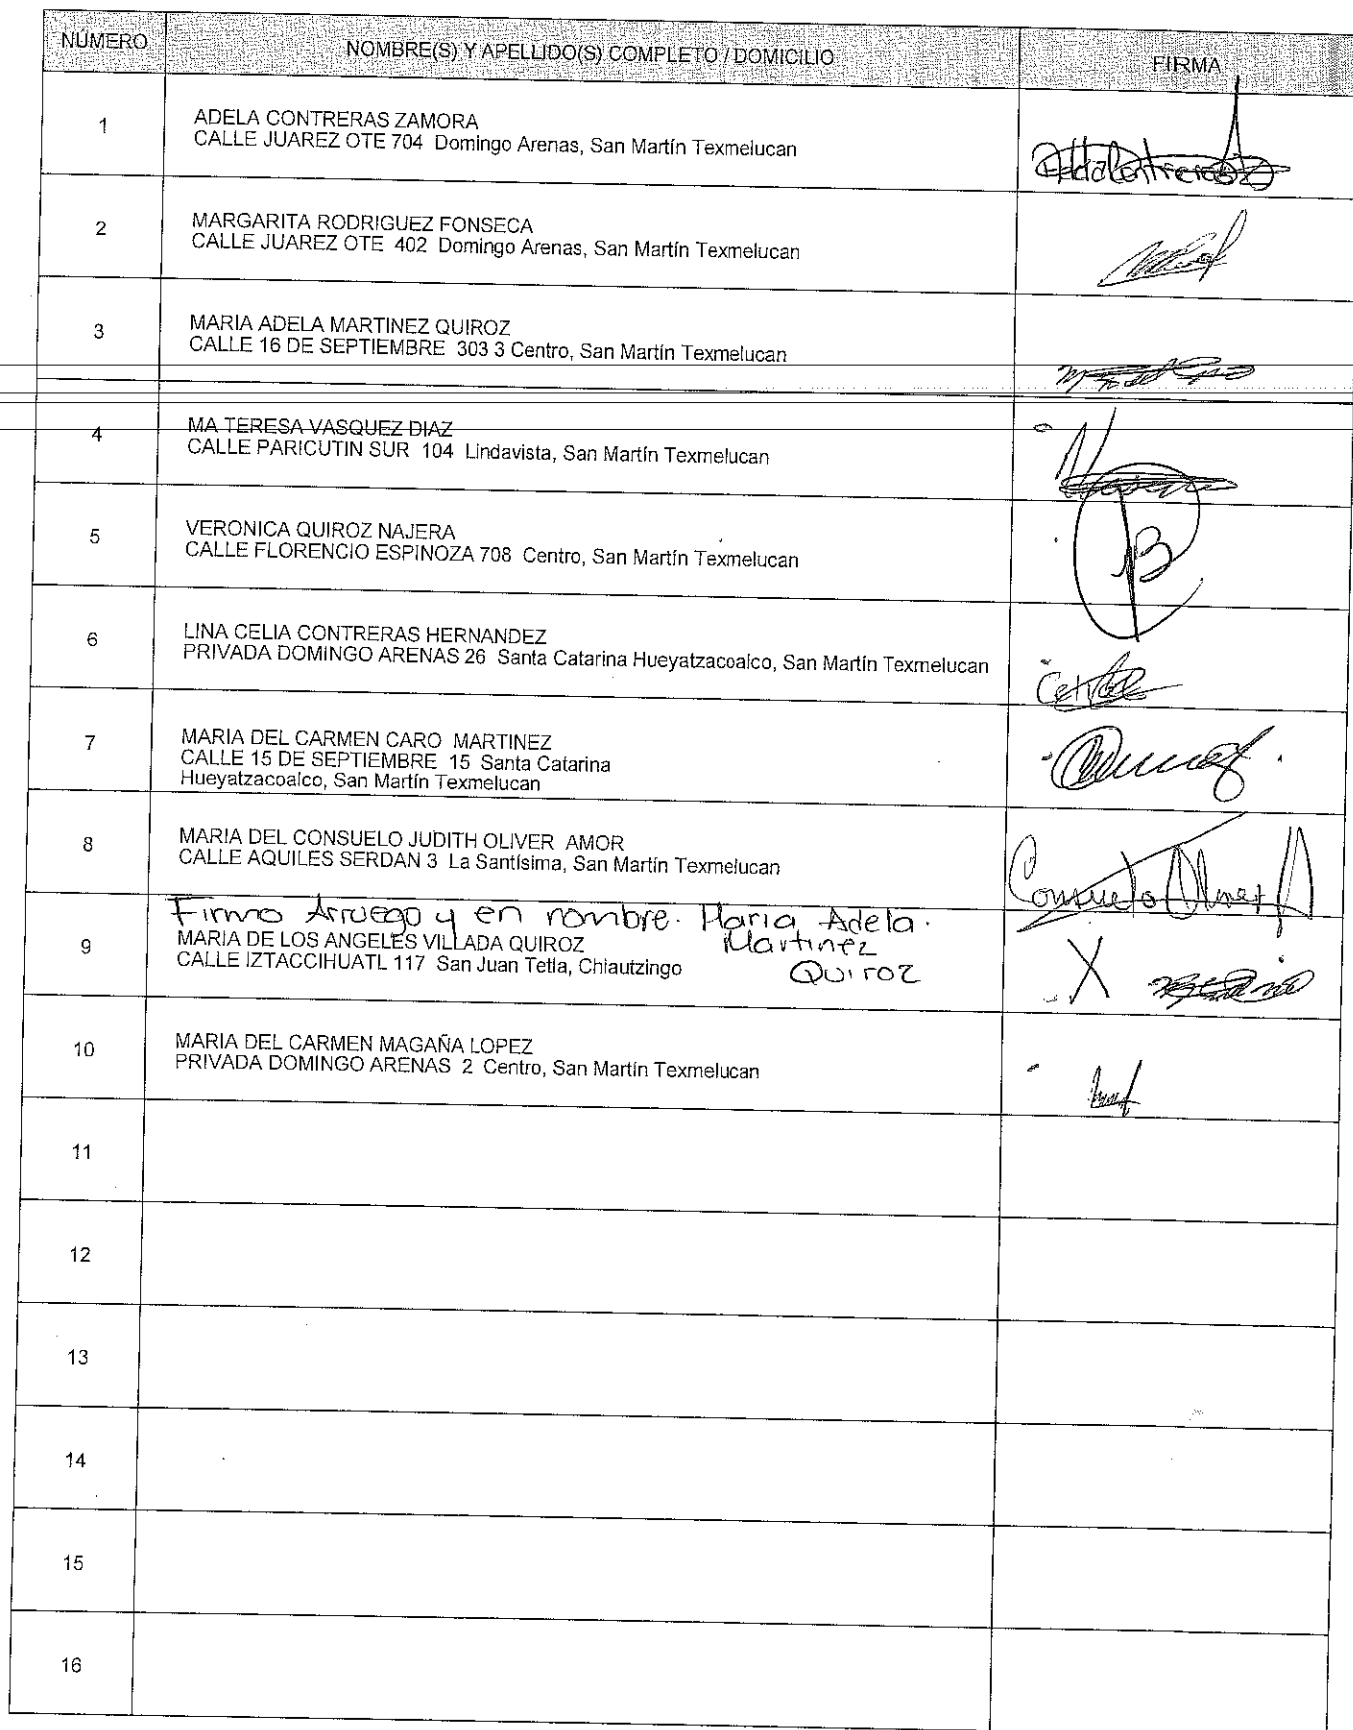 NÚMERO NOMBRE(S) Y APELLIDO(S) COMPLETO / DOMICILIO FIRMA
1 ADELA CONTRERAS ZAMORA
CALLE JUAREZ OTE 704 Domingo Arenas, San Martín Texmelucan
2 MARGARITA RODRIGUEZ FONSECA
CALLE JUAREZ OTE 402 Domingo Arenas, San Martín Texmelucan
3 MARIA ADELA MARTINEZ QUIROZ
CALLE 16 DE SEPTIEMBRE 303 3 Centro, San Martín Texmelucan
4 MA TERESA VASQUEZ DIAZ
CALLE PARICUTIN SUR 104 Lindavista, San Martín Texmelucan
5 VERONICA QUIROZ NAJERA
CALLE FLORENCIO ESPINOZA 708 Centro, San Martín Texmelucan
6 LINA CELIA CONTRERAS HERNANDEZ
PRIVADA DOMINGO ARENAS 26 Santa Catarina Hueyatzacoalco, San Martín Texmelucan
7 MARIA DEL CARMEN CARO MARTINEZ
CALLE 15 DE SEPTIEMBRE 15 Santa Catarina
Hueyatzacoalco, San Martín Texmelucan
8 MARIA DEL CONSUELO JUDITH OLIVER AMOR
CALLE AQUILES SERDAN 3 La Santísima, San Martín Texmelucan
Consuelo Oliver A
Firmo Arruego y en nombre. Maria Adela.
Martinez
Quiroz
9 MARIA DE LOS ANGELES VILLADA QUIROZ
CALLE IZTACCIHUATL 117 San Juan Tetla, Chiautzingo
X
10 MARIA DEL CARMEN MAGAÑA LOPEZ
PRIVADA DOMINGO ARENAS 2 Centro, San Martín Texmelucan
11
12
13
14
15
16